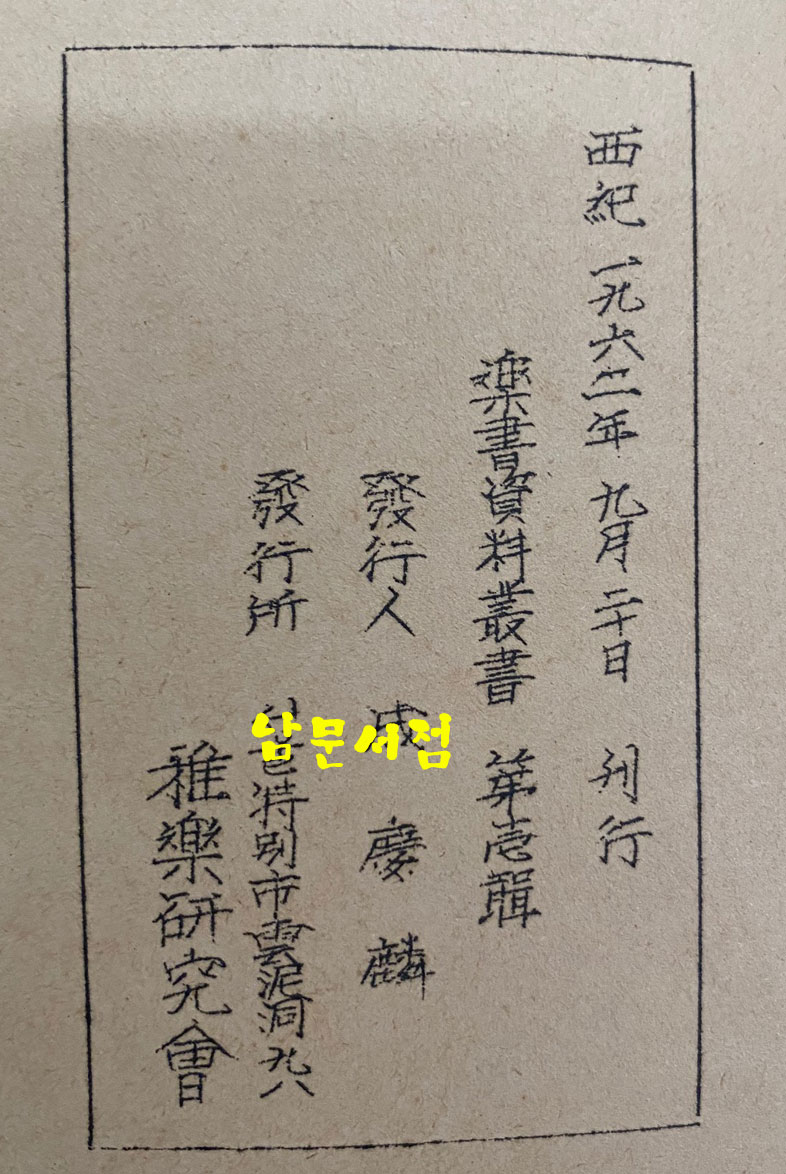 西紀 一九六二年 九月 二十日 刊行
樂書資料叢書 第壱輯
發行人 成慶麟
發行所 서울特别市雲泥洞九八
雅樂硏究會
남문서점